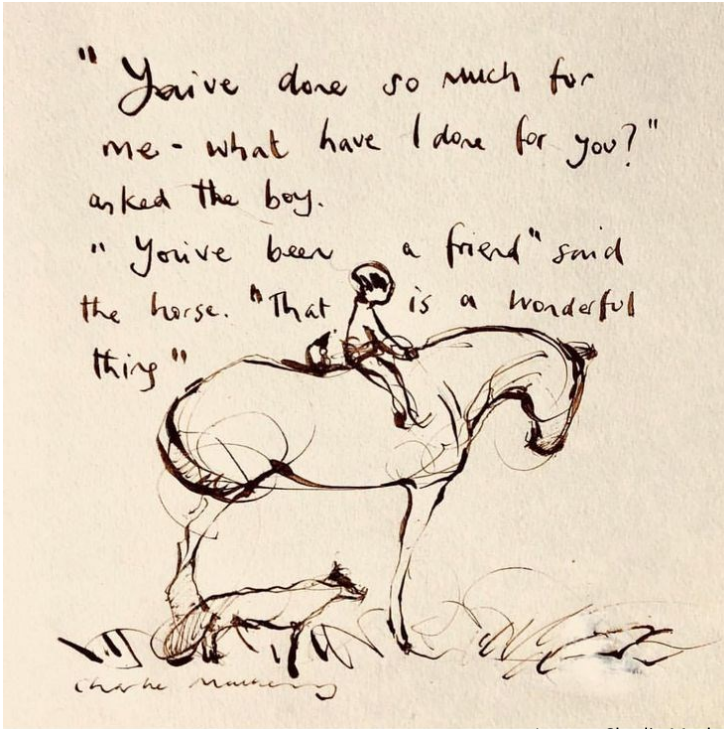 "You've done so much for
me - what have I done for you?"
asked the boy.
"You've been a friend" said
the horse. "That is a wonderful
thing"
Charlie